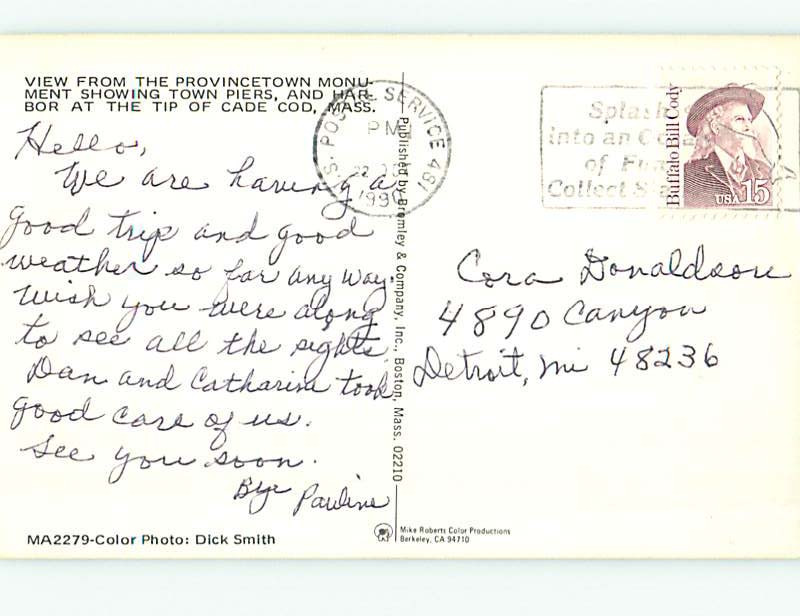 VIEW FROM THE PROVINCETOWN MONU-
MENT SHOWING TOWN PIERS, AND HAR-
BOR AT THE TIP OF CADE COD, MASS.
Hello,
We are having a
good trip and good
weather so far any way.
Wish you were along
to see all the sights.
Dan and Catharine took
good care of us.
See you soon.
Bye Pauline
MA2279-Color Photo: Dick Smith
Published by Bromley & Company, Inc., Boston, Mass. 02210
U.S. POSTAL SERVICE 481
PM
22
Splash
into an
of Fun
Collect
Buffalo Bill Cody
USA 15
Cora Donaldson
4890 Canyon
Detroit, Mi 48236
Mike Roberts Color Productions
Berkeley, CA 94710